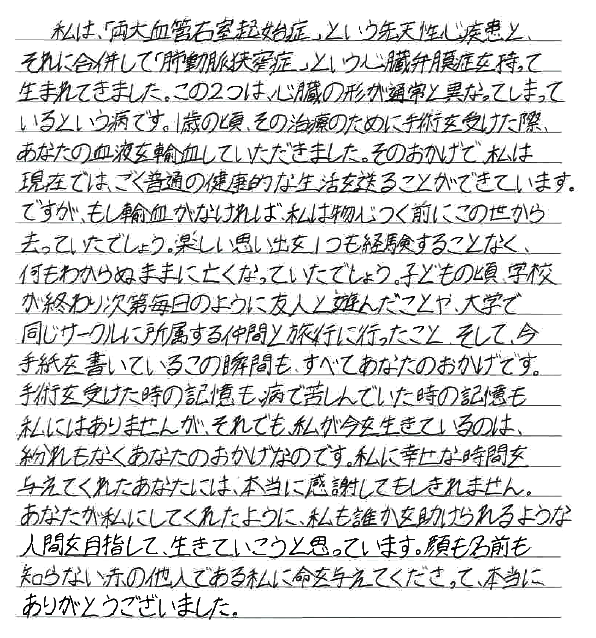 私は、「両大血管右室起始症」という先天性心疾患と、
それに合併して「肺動脈狭窄症」という心臓弁膜症を持って
生まれてきました。この2つは、心臓の形が通常と異なってしまって
いるという病です。1歳の頃、その治療のために手術を受けた際、
あなたの血液を輸血していただきました。そのおかげで、私は
現在では、ごく普通の健康的な生活を送ることができています。
ですが、もし輸血がなければ、私は物心つく前にこの世から
去っていたでしょう。楽しい思い出を1つも経験することなく、
何もわからぬままに亡くなっていたでしょう。子どもの頃、学校
が終わり次第毎日のように友人と遊んだことや、大学で
同じサークルに所属する仲間と旅行に行ったこと、そして、今
手紙を書いているこの瞬間も、すべてあなたのおかげです。
手術を受けた時の記憶も、病で苦しんでいた時の記憶も
私にはありませんが、それでも、私が今を生きているのは、
紛れもなくあなたのおかげなのです。私に幸せな時間を
与えてくれたあなたには、本当に感謝してもしきれません。
あなたが私にしてくれたように、私も誰かを助けられるような
人間を目指して、生きていこうと思っています。顔も名前も
知らない赤の他人である私に命を与えてくださって、本当に
ありがとうございました。